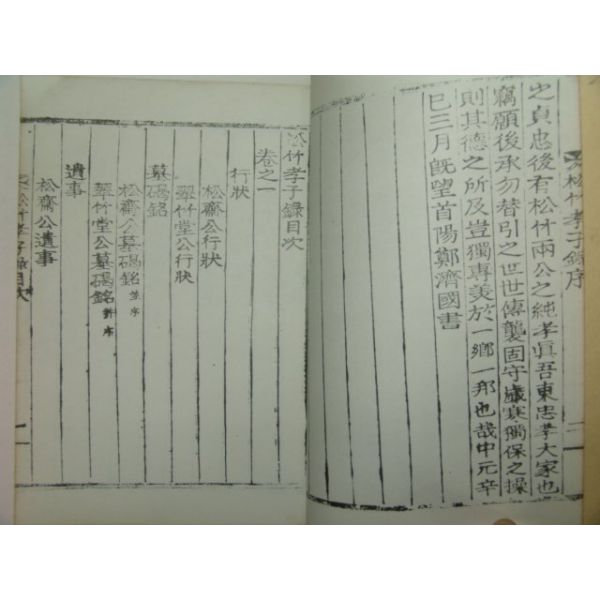 松竹孝子錄序
之貞忠後有松竹兩公之純孝眞吾東忠孝大家也
竊願後承勿替引之世世傳襲固守歲寒獨保之操
則其德之所及豈獨專美於一鄕一邦也哉中元辛
巳三月旣望首陽鄭濟國書
松竹孝子錄目次
卷之一
行狀
松齋公行狀
翠竹堂公行狀
墓碣銘
松齋公墓碣銘 並序
翠竹堂公墓碣銘 並序
遺事
松齋公遺事
松竹孝子錄目次
一